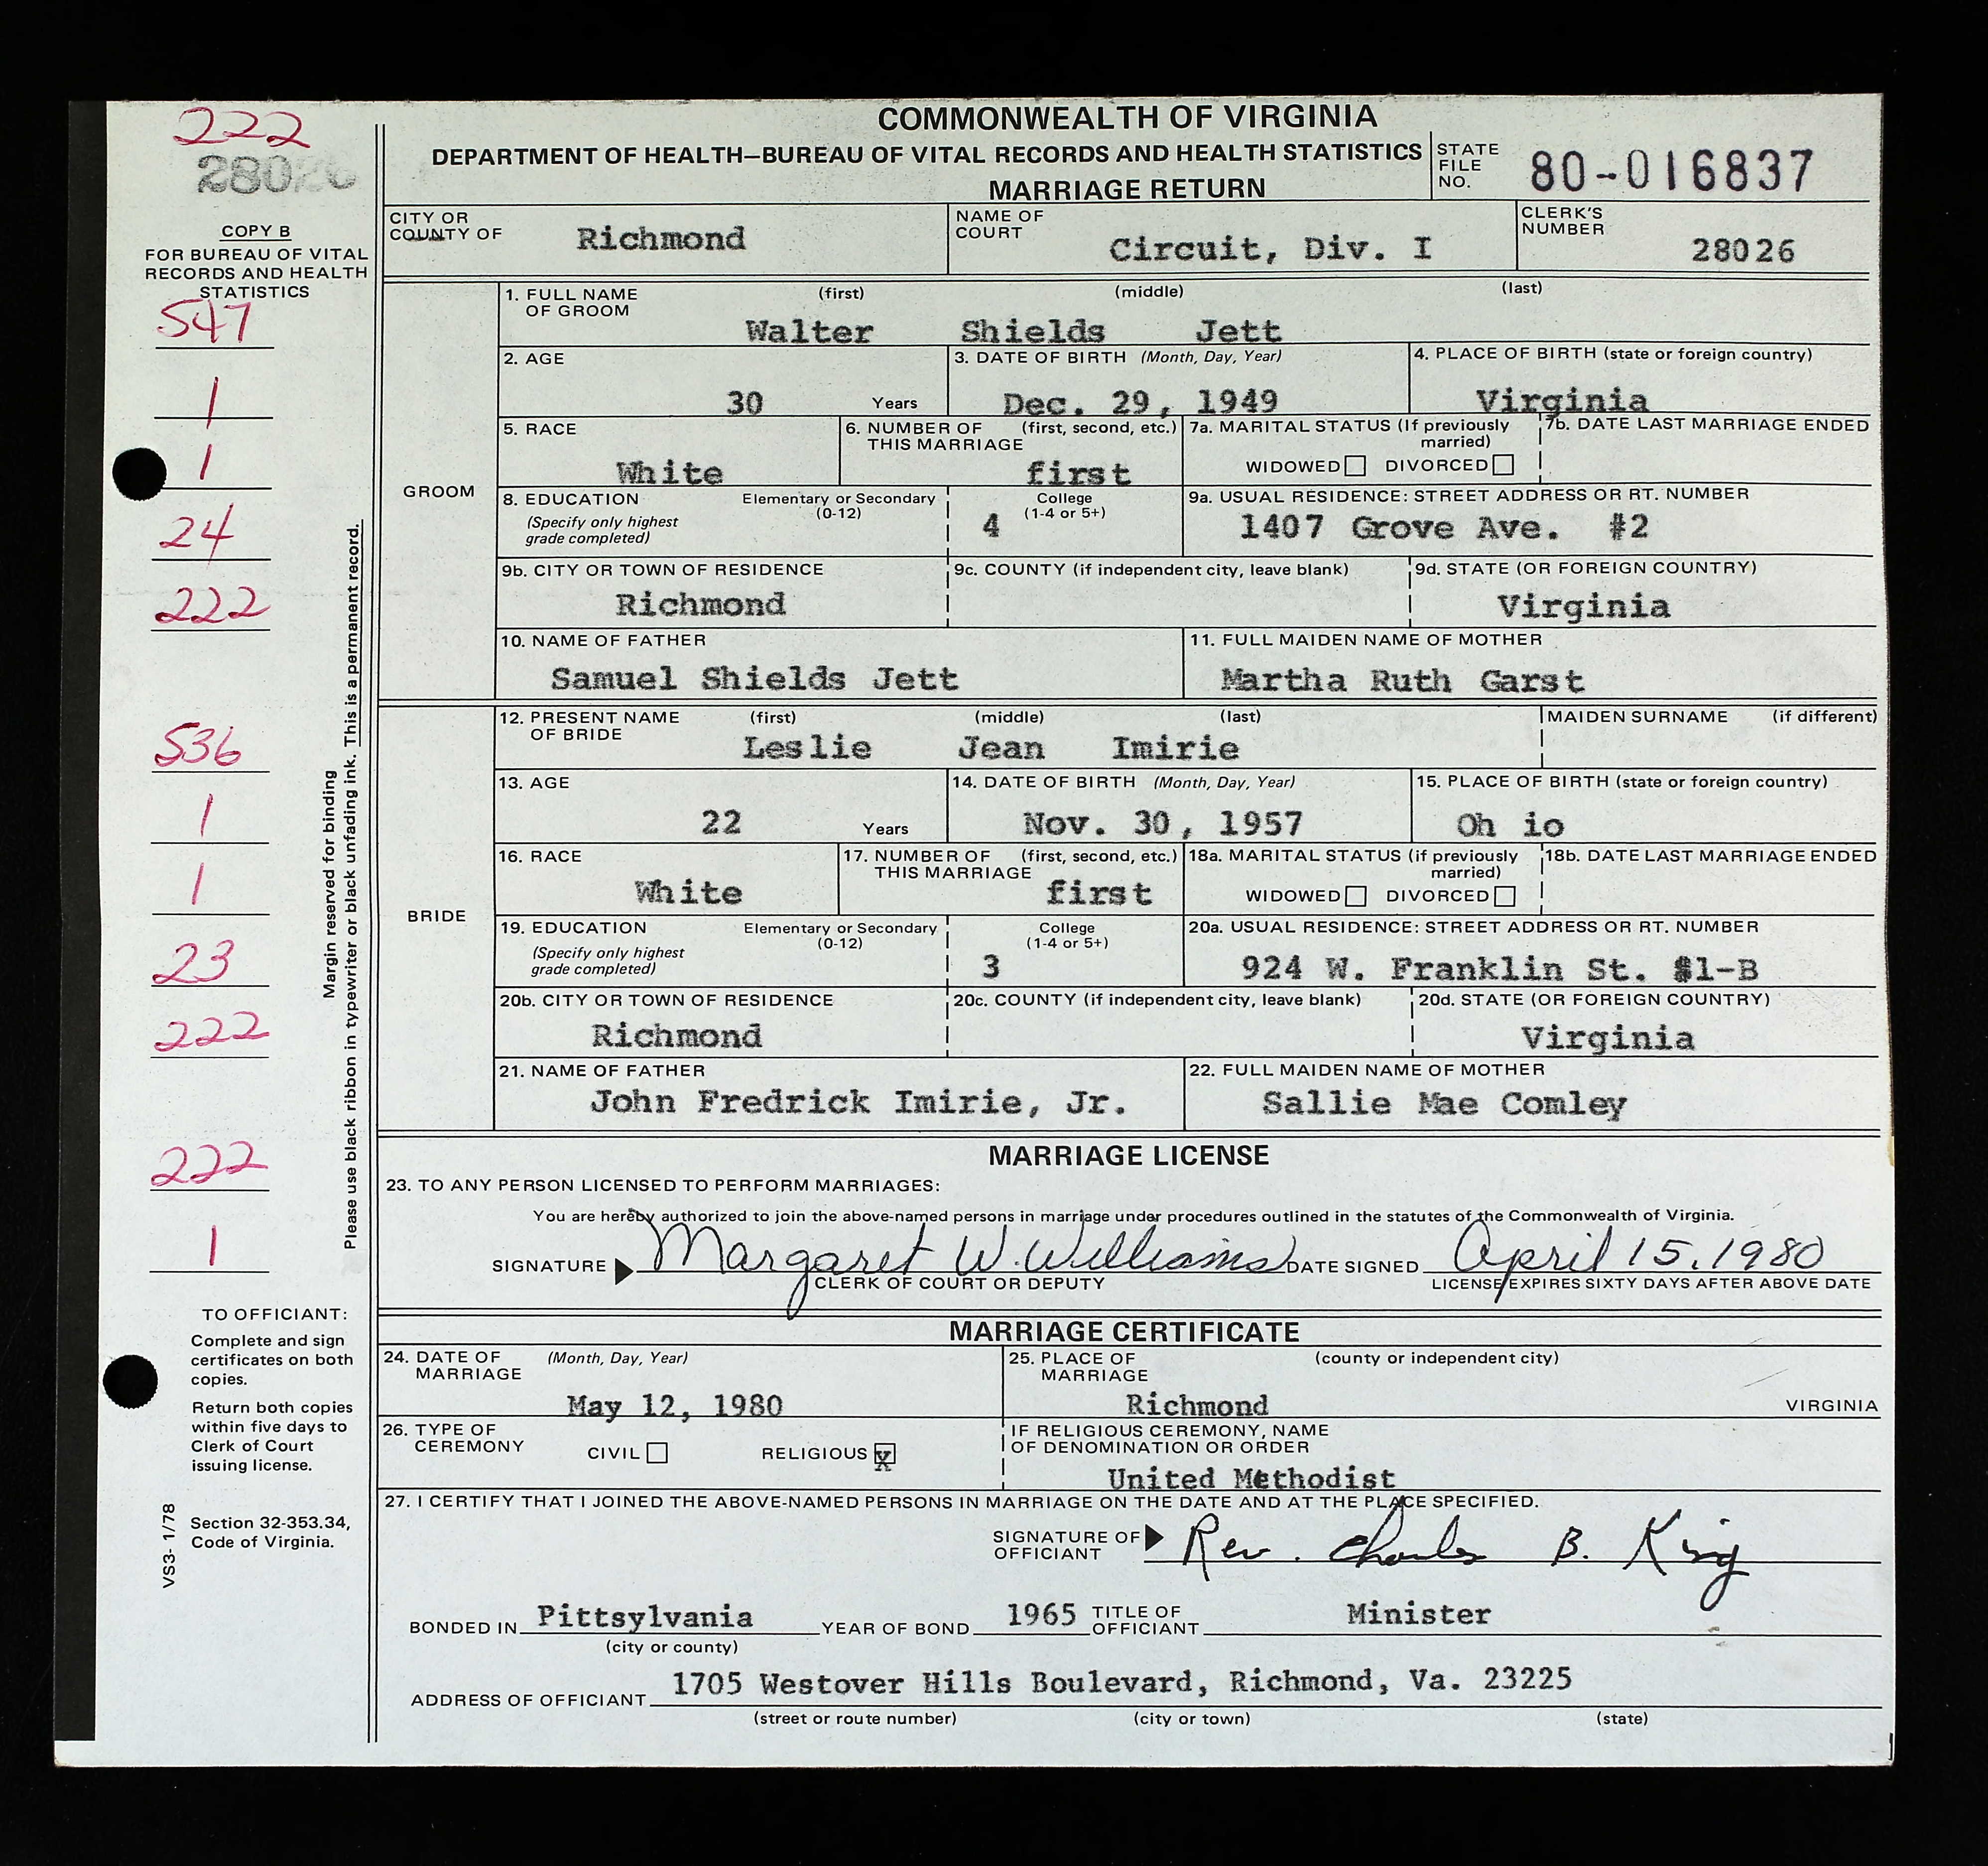 222
28026
COPY B
FOR BUREAU OF VITAL
RECORDS AND HEALTH
STATISTICS
547
1
1
24
222
536
1
1
23
222
222
1
Margin reserved for binding
Please use black ribbon in typewriter or black unfading ink. This is a permanent record.
TO OFFICIANT:
Complete and sign
certificates on both
copies.
Return both copies
within five days to
Clerk of Court
issuing license.
Section 32-353.34,
Code of Virginia.
VS3- 1/78
COMMONWEALTH OF VIRGINIA
DEPARTMENT OF HEALTH—BUREAU OF VITAL RECORDS AND HEALTH STATISTICS
MARRIAGE RETURN
STATE FILE NO. 80-016837
CITY OR COUNTY OF Richmond
NAME OF COURT Circuit, Div. I
CLERK'S NUMBER 28026
GROOM
1. FULL NAME OF GROOM (first) (middle) (last)
Walter Shields Jett
2. AGE 30 Years
3. DATE OF BIRTH (Month, Day, Year) Dec. 29, 1949
4. PLACE OF BIRTH (state or foreign country) Virginia
5. RACE White
6. NUMBER OF THIS MARRIAGE (first, second, etc.) first
7a. MARITAL STATUS (If previously married) WIDOWED DIVORCED
7b. DATE LAST MARRIAGE ENDED
8. EDUCATION (Specify only highest grade completed) Elementary or Secondary (0-12) College (1-4 or 5+) 4
9a. USUAL RESIDENCE: STREET ADDRESS OR RT. NUMBER 1407 Grove Ave. #2
9b. CITY OR TOWN OF RESIDENCE Richmond
9c. COUNTY (if independent city, leave blank)
9d. STATE (OR FOREIGN COUNTRY) Virginia
10. NAME OF FATHER Samuel Shields Jett
11. FULL MAIDEN NAME OF MOTHER Martha Ruth Garst
BRIDE
12. PRESENT NAME OF BRIDE (first) (middle) (last) MAIDEN SURNAME (if different)
Leslie Jean Imirie
13. AGE 22 Years
14. DATE OF BIRTH (Month, Day, Year) Nov. 30, 1957
15. PLACE OF BIRTH (state or foreign country) Oh io
16. RACE White
17. NUMBER OF THIS MARRIAGE (first, second, etc.) first
18a. MARITAL STATUS (if previously married) WIDOWED DIVORCED
18b. DATE LAST MARRIAGE ENDED
19. EDUCATION (Specify only highest grade completed) Elementary or Secondary (0-12) College (1-4 or 5+) 3
20a. USUAL RESIDENCE: STREET ADDRESS OR RT. NUMBER 924 W. Franklin St. #1-B
20b. CITY OR TOWN OF RESIDENCE Richmond
20c. COUNTY (if independent city, leave blank)
20d. STATE (OR FOREIGN COUNTRY) Virginia
21. NAME OF FATHER John Fredrick Imirie, Jr.
22. FULL MAIDEN NAME OF MOTHER Sallie Mae Comley
MARRIAGE LICENSE
23. TO ANY PERSON LICENSED TO PERFORM MARRIAGES:
You are hereby authorized to join the above-named persons in marriage under procedures outlined in the statutes of the Commonwealth of Virginia.
SIGNATURE Margaret W. Williams DATE SIGNED April 15, 1980
CLERK OF COURT OR DEPUTY LICENSE EXPIRES SIXTY DAYS AFTER ABOVE DATE
MARRIAGE CERTIFICATE
24. DATE OF MARRIAGE (Month, Day, Year) May 12, 1980
25. PLACE OF MARRIAGE (county or independent city) Richmond VIRGINIA
26. TYPE OF CEREMONY CIVIL RELIGIOUS X
IF RELIGIOUS CEREMONY, NAME OF DENOMINATION OR ORDER
United Methodist
27. I CERTIFY THAT I JOINED THE ABOVE-NAMED PERSONS IN MARRIAGE ON THE DATE AND AT THE PLACE SPECIFIED.
SIGNATURE OF OFFICIANT Rev. Charles B. King
BONDED IN Pittsylvania YEAR OF BOND 1965 TITLE OF OFFICIANT Minister
(city or county)
ADDRESS OF OFFICIANT 1705 Westover Hills Boulevard, Richmond, Va. 23225
(street or route number) (city or town) (state)